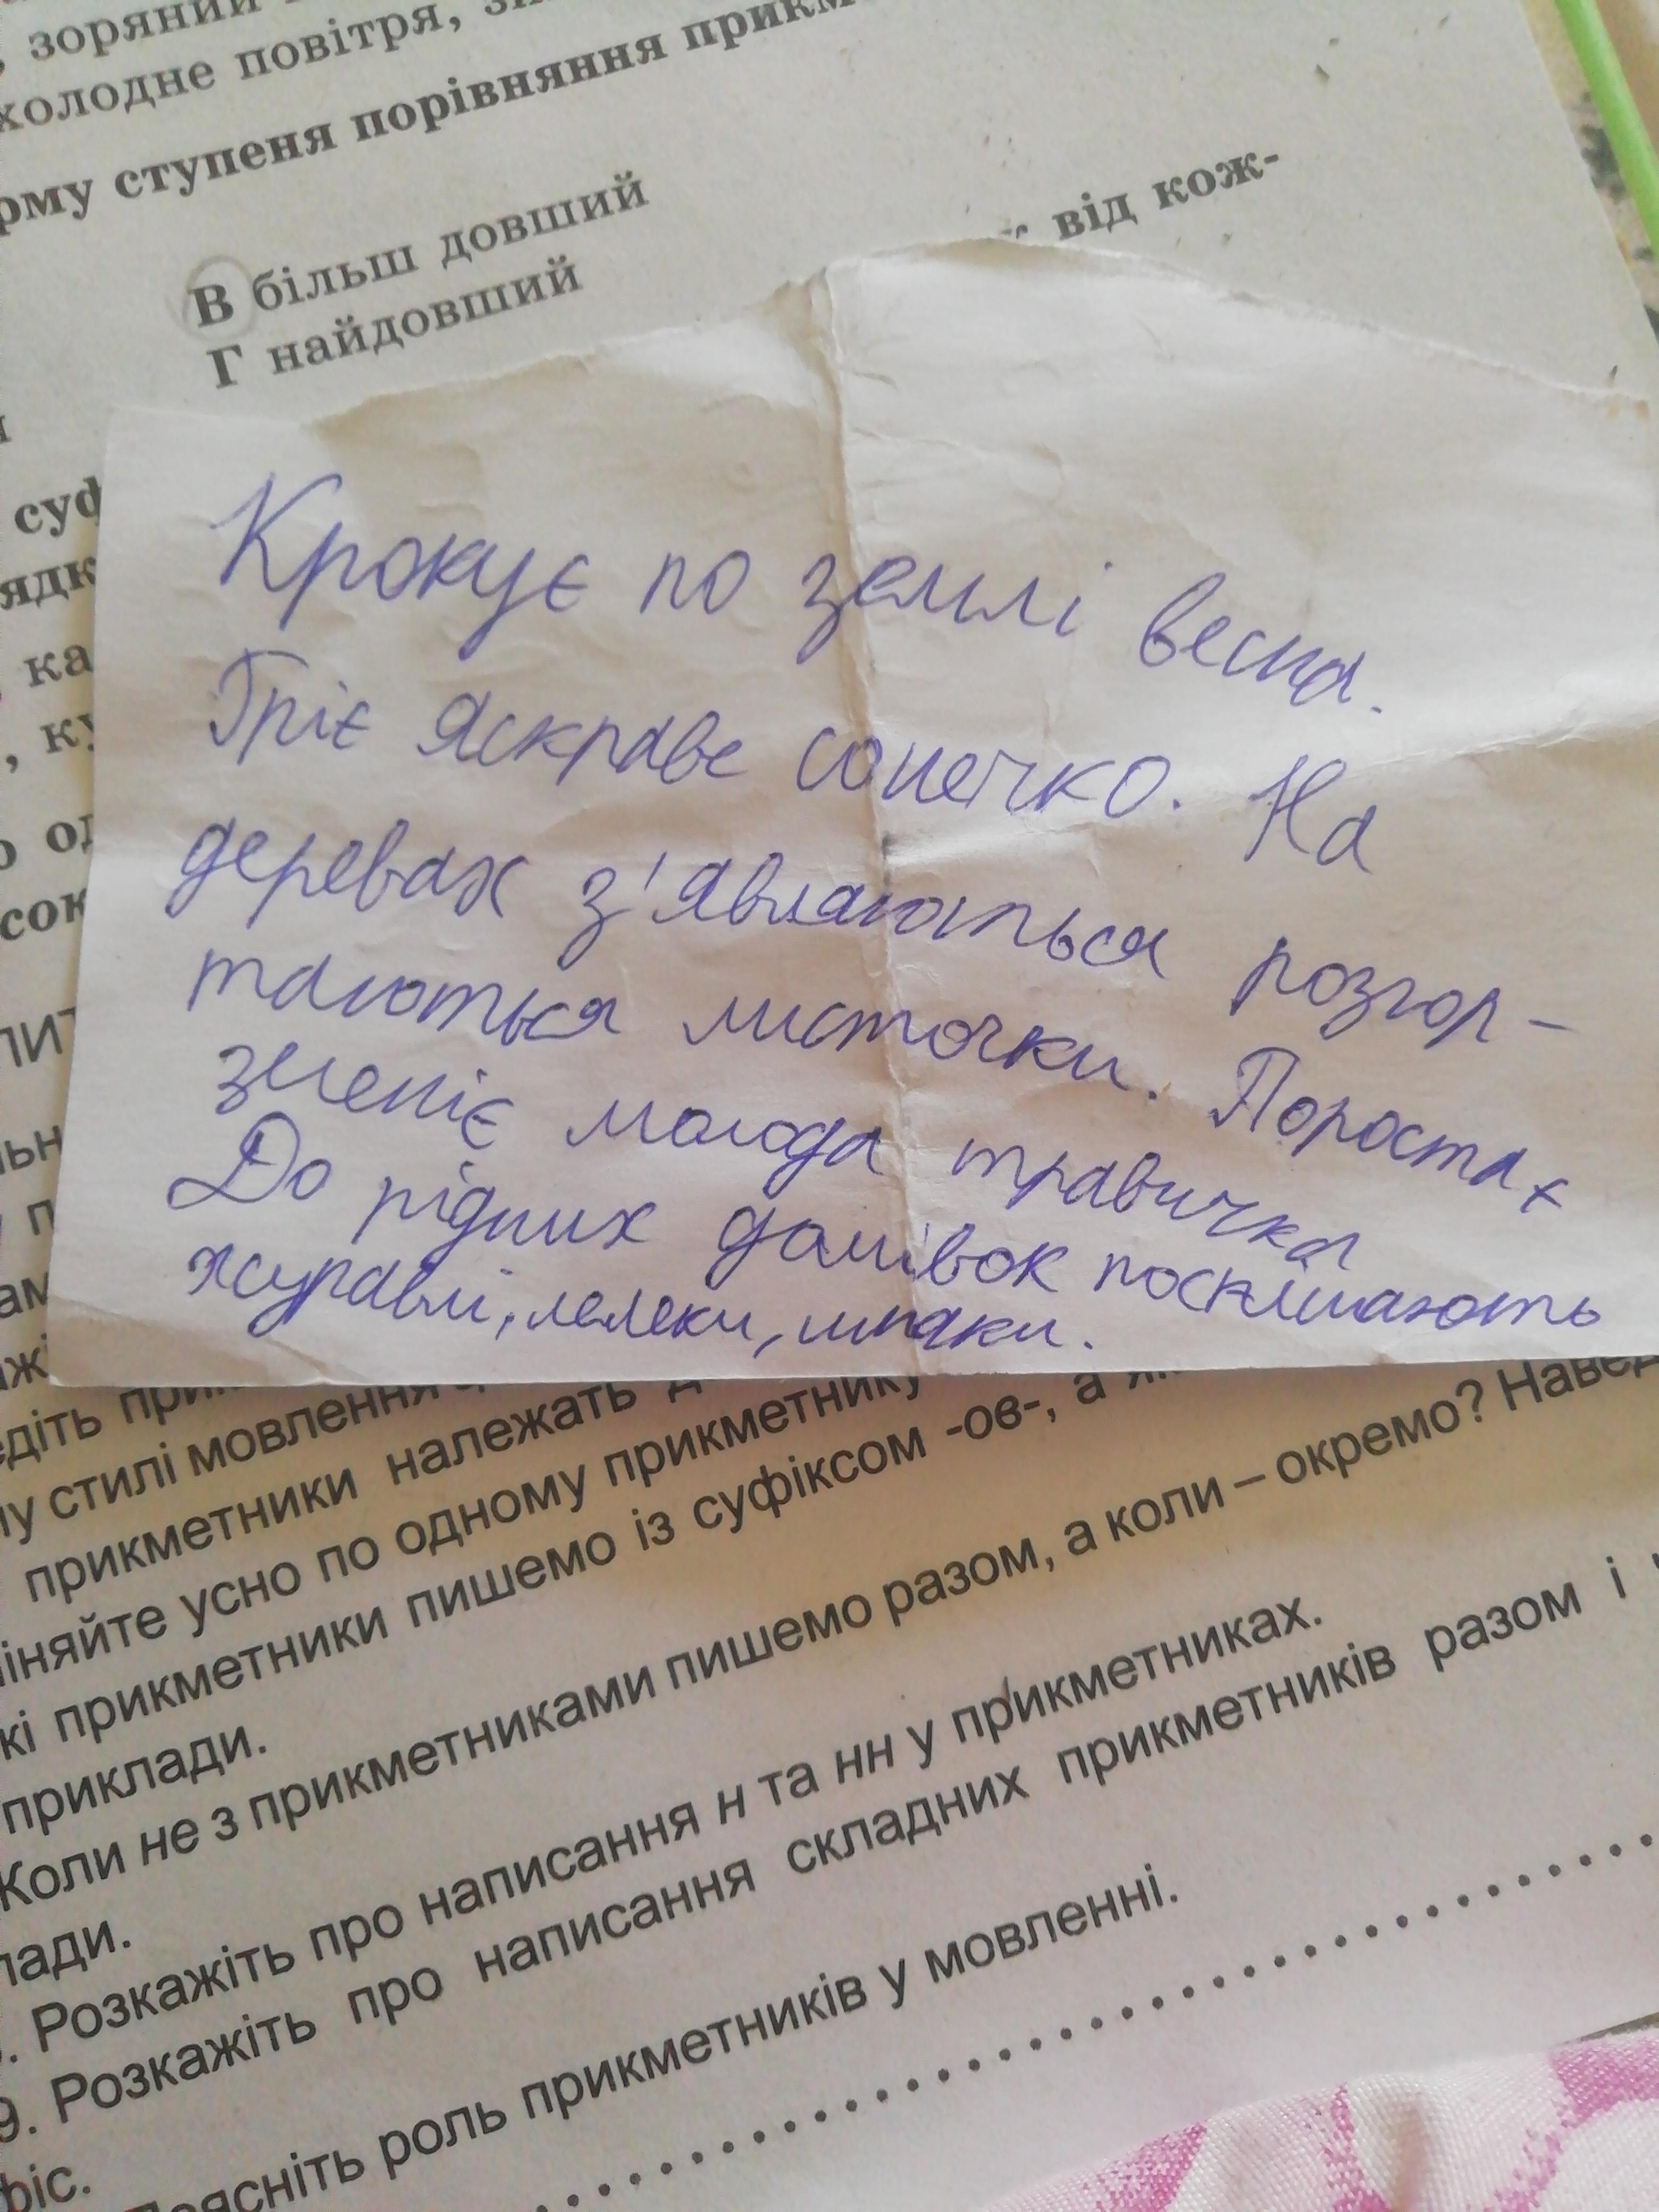 зоряний
холодне повітря,
ступеня порівняння
В більш довший
Г найдовший
від кож-
Крокує по землі весна.
Гріє яскраве сонечко. На
деревах з'являються розгор-
таються листочки. Пороста є
зеленіє молода травичка
До рідних домівок поспішають
журавлі, лелеки, шпаки.
стилі мовлення
прикметники належать
усно по одному прикметнику
прикметники пишемо із суфіксом -ов-, а
приклади.
Коли не з прикметниками пишемо разом, а коли – окремо?
Розкажіть про написання н та нн у прикметниках.
9. Розкажіть про написання складних прикметників разом і
роль прикметників у мовленні.